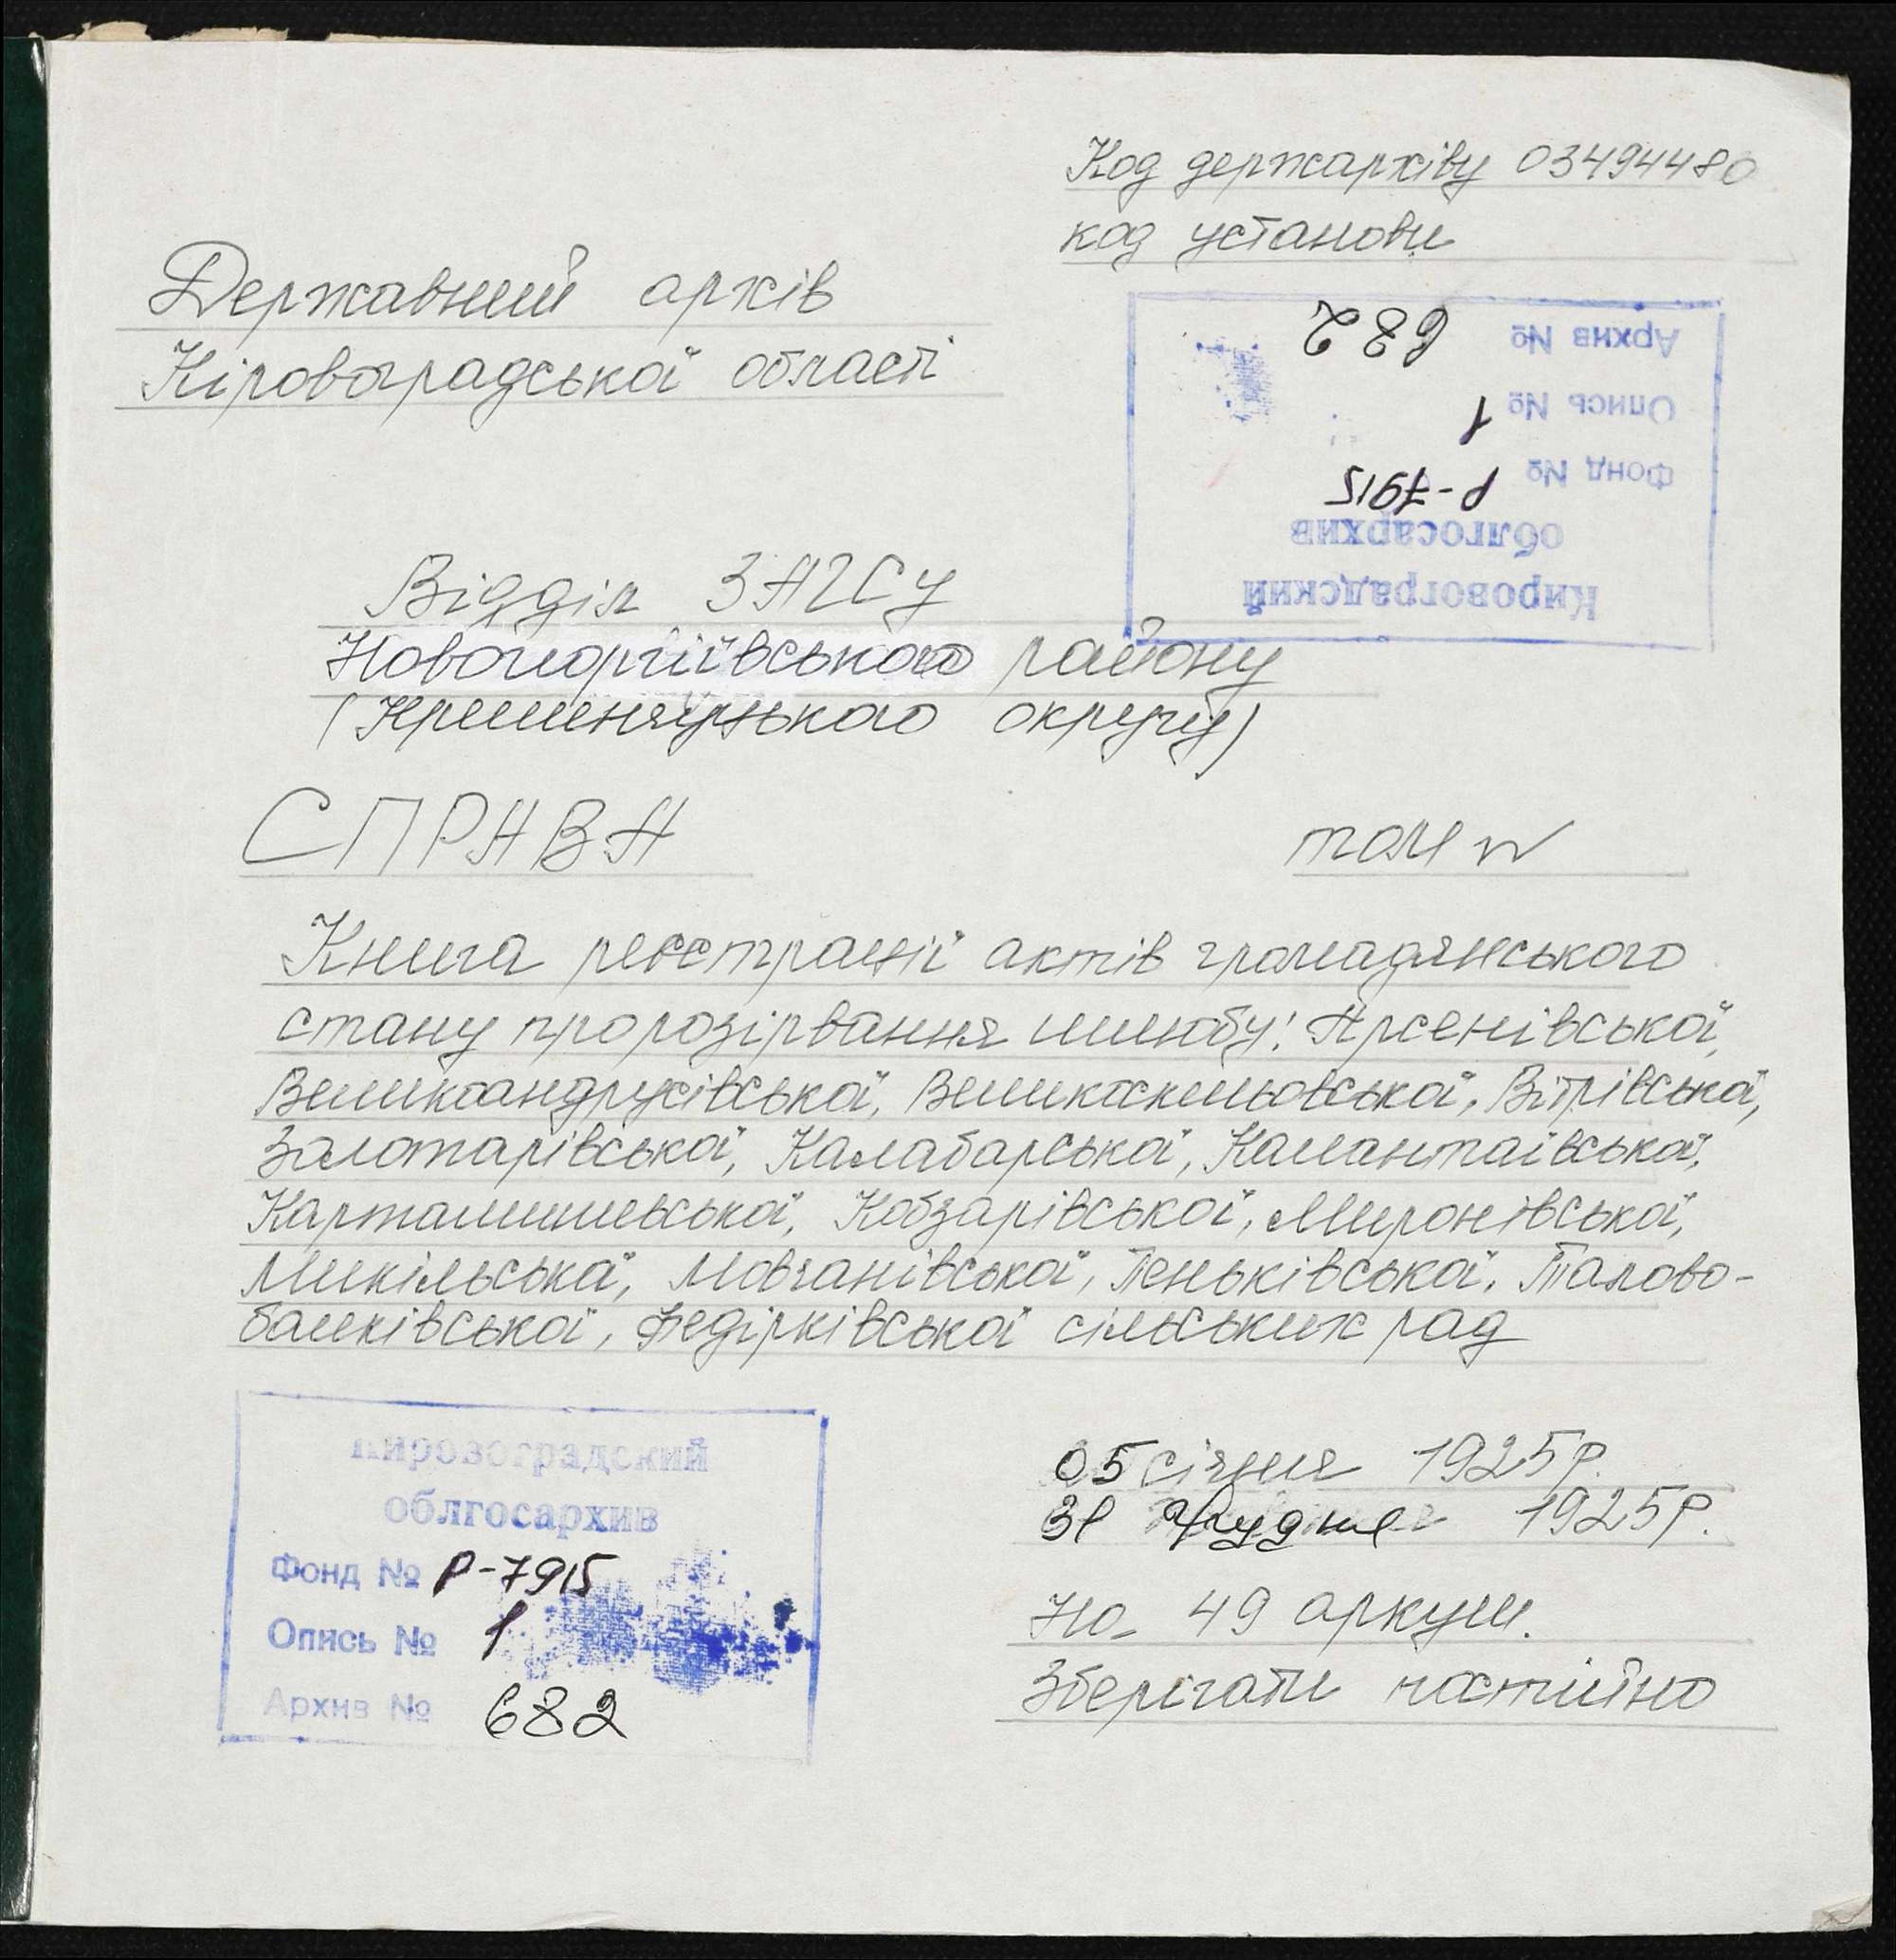 Код держархіву 03494480
код установи
Державний архів
Кіровоградської області
Кировоградский
облгосархив
Фонд № Р-7915
Опись № 1
Архив № 682
Відділ ЗАГСу
Новогеоргіївського району
(Кременчуцького округу)
СПРАВА
том №
Книга реєстрації актів громадянського
стану про розірвання шлюбу: Арсенівської,
Великоандрусівської, Великоскельовської, Вітрівської,
Золотарівської, Калабарської, Камантаївської,
Карталишевської, Кобзарівської, Миронівської,
Микільської, Мовчанівської, Пеньківської, Талово-
балківської, Федірківської сільських рад
Кировоградский
облгосархив
Фонд № Р-7915
Опись № 1
Архив № 682
05 січня 1925р.
31 грудня 1925р.
На 49 аркуш.
Зберігати постійно